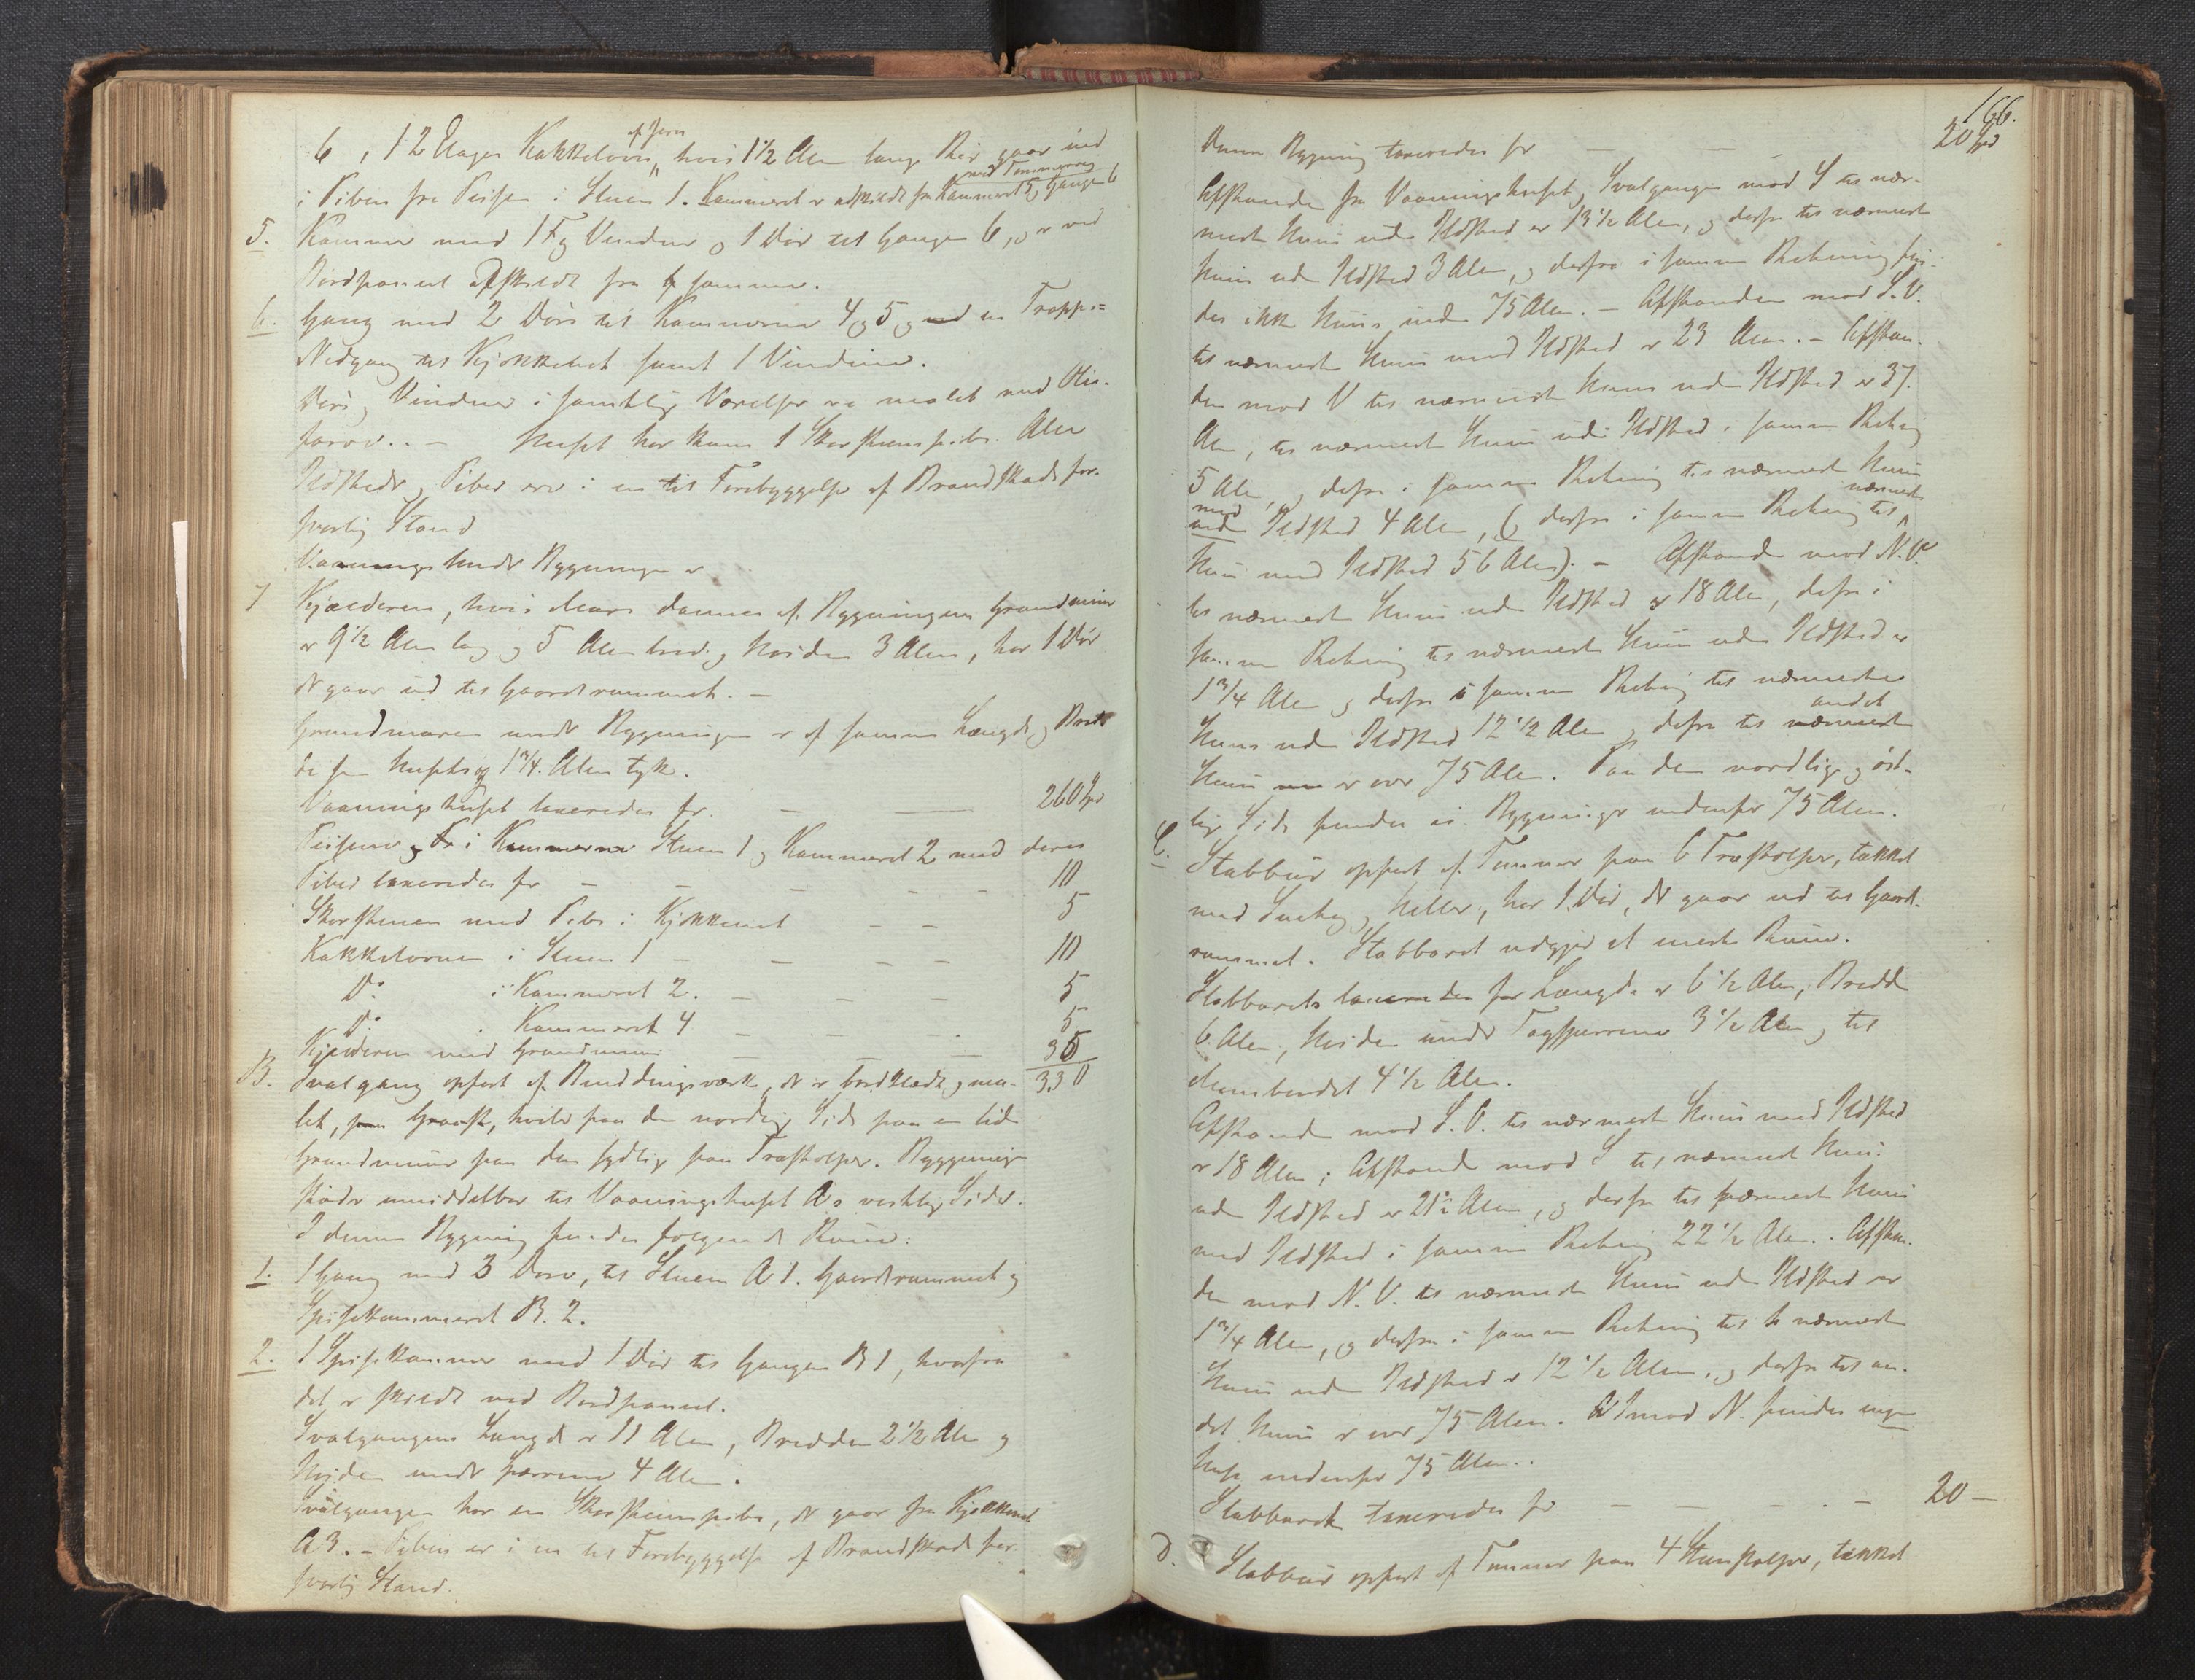 6, 1 2 Etages Kakkelovn af Jern, hvis 1½ Alen lange Rør gaar ind
i Piben fra Peisen i Stuen 1. Kammeret er adskildt fra Kammeret 5 og Gangen 6 med Tømmervæg
5. Kammer med 1 Fag Vinduer og 1 Dør til Gangen 6, og er ved
Bordpanel afskildt fra samme.
6. Gang med 2 Døre til Kammerne 4 og 5 og en Trappe=
Nedgang til Kjøkkenet samt 1 Vindue.
Døre og Vinduer i samtlige Værelser ere malet med Olie-
farve. – Huset har kuns 1 Skorsteenspibe. Alle
Ildsteder og Piber ere i en til Forebyggelse af Brandskade for-
svarlig Stand
Vaaningshuus Bygningen er
7 Kjælderen, hvis Mure dannes af Bygningens Grundmuur
er 9½ Alen lang og 5 Alen bred og Høiden 3 Alen, har 1 Dør
der gaar ud til Gaardsrummet. –
Grundmuren under Bygningen er af samme Længde og Bred
de som Huset og 1¾ Alen tyk.
Vaaningshuset taxeredes for – — 260 Spd
Peisene i Stuen 1 og Kammeret 2 med deres
Piber taxeredes for – – – – – 10
Skorstenen med Pibe i Kjøkkenet – – 5
Kakkelovnen i Stuen 1 – – – – 10
Do i Kammeret 2. – – – 5
Do i Kammeret 4 – – – 5
Kjælderen med Grundmuur – – – 35
B. Svalgang opført af Bindingsværk, der er bordklædt og ma- 330
let, hviler paa den nordlige Side paa en liden
Grundmuur paa den sydlige paa Træstolper. Bygningen
støder umiddelbar til Vaaningshuset A's vestlige Side.
I denne Bygning findes følgende Rum:
1. 1 Gang med 3 Døre, til Stuen A 1. Gaardsrummet og
Spisekammeret B. 2.
2. 1 Spisekammer med 1 Dør til Gangen B 1, hvorfra
det er skildt ved Bordpanel.
Svalgangens Længde er 11 Alen, Bredden 2½ Alen og
Høiden under Sperrene 4 Alen.
Svalgangen har en Skorsteenspibe, der gaar fra Kjøkkenet
A 3. – Piben er i en til Forebyggelse af Brandskade for-
svarlig Stand.
166.
Denne Bygning taxeredes for – – – 20 Spd
Afstanden fra Vaaningshuset og Svalgangen mod S til nær-
meste Huus uden Ildsted er 13½ Alen, og derfra til nærmeste
Huus uden Ildsted 3 Alen, og derfra i samme Retning fin-
des ikke Huus inden 75 Alen. – Afstanden mod S.V.
til nærmeste Huus med Ildsted er 23 Alen. – Afstan-
den mod V til nærmeste Huus uden Ildsted er 37
Alen, til nærmeste Huus uden Ildsted i samme Retning
5 Alen, og derfra i samme Retning til nærmeste Huus
med Ildsted 4 Alen, (og derfra i samme Retning til nærmeste
Huus med Ildsted 56 Alen). – Afstanden mod N.V.
til nærmeste Huus uden Ildsted er 18 Alen, derfra i
samme Retning til nærmeste Huus uden Ildsted er
1¾ Alen og derfra i samme Retning til nærmeste
Huus uden Ildsted 12½ Alen og derfra til andet
Huus er over 75 Alen. Paa den nordlige og øst-
lige Side findes ei Bygninger indenfor 75 Alen.
C. Stabbuur opført af Tømmer paa 6 Træstolper, tækket
med Heller, har 1 Dør, der gaar ud til Gaards-
rummet. Stabburet udgjør et eneste Rum.
Stabburets Længde er 6½ Alen, Bredde
6 Alen, Høiden under Tagsperrene 3½ Alen og til
4½ Alen.
Afstanden mod S.V. til nærmeste Huus med Ildsted
er 18 Alen; Afstanden mod S til nærmeste Huus
uden Ildsted er 21½ Alen, og derfra til nærmeste Huus
med Ildsted i samme Retning 22½ Alen. Afstan-
den mod N.V. til nærmeste Huus uden Ildsted er
1¾ Alen, og derfra i samme Retning til nærmeste
Huus uden Ildsted er 12½ Alen, og derfra til an-
det Huus er over 75 Alen. Imod N. findes ingen
Huse indenfor 75 Alen.
Stabburet taxeredes for – – – – 20 –
D. Stabbuur opført af Tømmer paa 4 Steenstolper, tækket